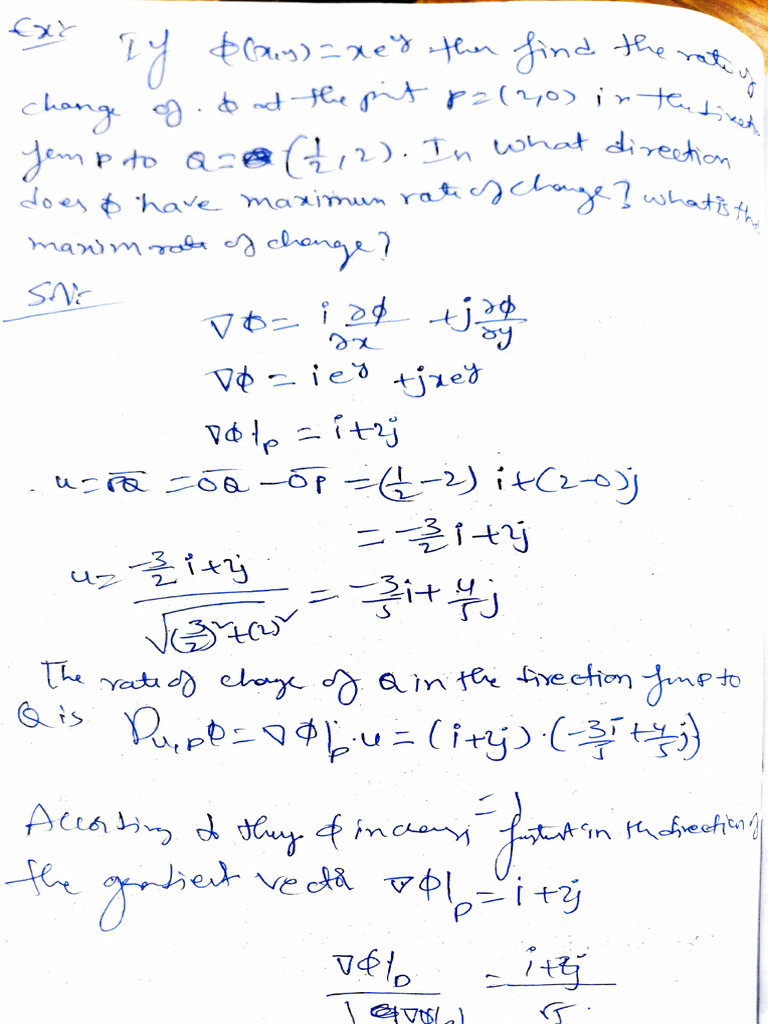 Ex:- If φ(x,y) = xe^y then find the rate of
change of φ at the point P = (2,0) in the direction
from P to Q = (1/2, 2). In what direction
does φ have maximum rate of change? what is the
maxim rate of change?
Sol:-
∇φ = i ∂φ/∂x + j ∂φ/∂y
∇φ = i e^y + j x e^y
∇φ|p = i + 2j
u = PQ = OQ - OP = (1/2 - 2) i + (2-0) j
= -3/2 i + 2j
u = (-3/2 i + 2j)/√((3/2)² + (2)²) = -3/5 i + 4/5 j
The rate of change of Q in the direction from P to
Q is D_{u,p}φ = ∇φ|p . u = (i+2j) . (-3/5 i + 4/5 j)
= 1
According to φ increases fastest in the direction of
the gradient vector ∇φ|p = i + 2j
∇φ|p / |∇φ|p| = (i + 2j)/√5 .